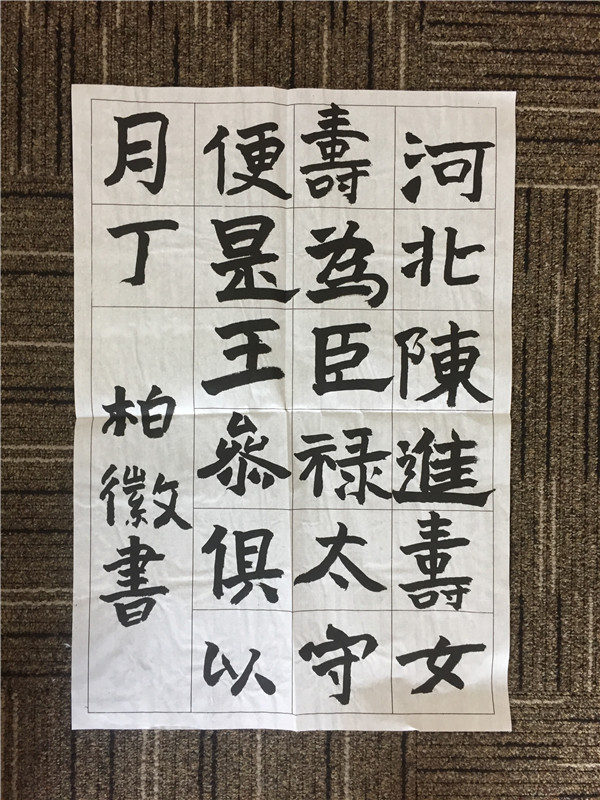 河北陳進壽女
壽為臣祿太守
便是王叅俱以
月丁
柏徽書